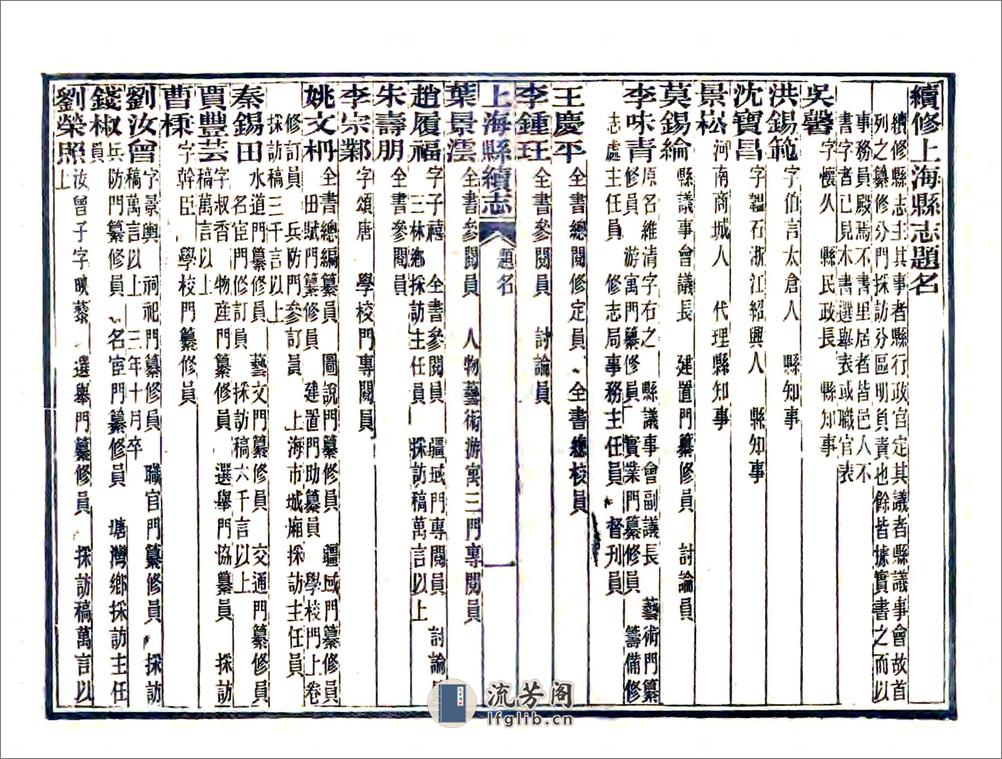 續修上海縣志題名
續修縣志主其事者縣行政官定其議者縣議事會故首
列之纂修分門採訪分區明負責也餘皆據實書之而以
事務員殿焉不書里居者皆邑人不
書字者已見本書選舉表或職官表
吳馨
字懷久 縣民政長 縣知事
洪錫範
字伯言太倉人 縣知事
沈寶昌
字韞石浙江紹興人 縣知事
景崧
河南商城人 代理縣知事
莫錫綸
縣議事會議長 建置門纂修員 討論員
李味青
原名維清字右之 縣議事會副議長 藝術門纂
修員 游寓門纂修員 實業門纂修員 籌備修
志處主任員 修志局事務主任員 督刊員
王慶平
全書總閱修定員 全書總校員
李鍾珏
全書參閱員 討論員
上海縣續志 題名 一
葉景澐
全書參閱員 人物藝術游寓三門專閱員
趙履福
字子禧 全書參閱員 疆域門專閱員 討論員
三林鄉採訪主任員 採訪稿萬言以上
朱壽朋
全書參閱員
李宗鄴
字頌唐 學校門專閱員
姚文枬
全書總編纂員 圖說門纂修員 疆域門纂修員
田賦門纂修員 建置門助纂員 學校門上卷
修訂員 兵防門參訂員 上海市城廂採訪主任員
採訪稿三千言以上
秦錫田
水道門纂修員 藝文門纂修員 交通門纂修員
名宦門修訂員 採訪稿六千言以上
賈豐芸
字叔香 物產門纂修員 選舉門協纂員 採訪
稿萬言以上
曹橒
字幹臣 學校門纂修員
劉汝曾
字景輿 祠祀門纂修員 職官門纂修員 採訪
稿萬言以上 三年十月卒
錢椒
兵防門纂修員 名宦門纂修員 塘灣鄉採訪主任
員
劉榮照
汝曾子字映藜 選舉門纂修員 採訪稿萬言以
上
流芳阁
lfglib.cn